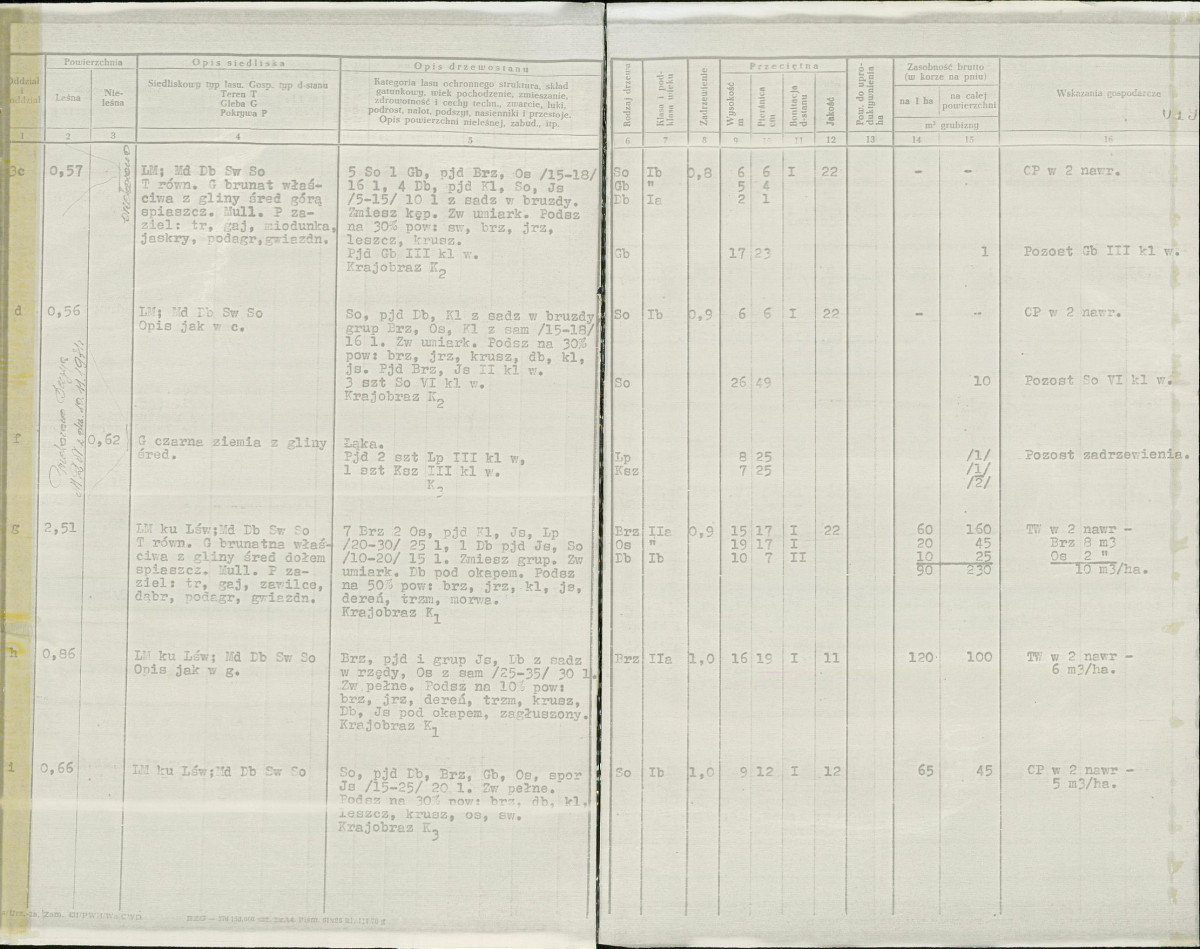 Powierzchnia
Opis siedliska
Opis drzewostanu
Leśna
Nie-
leśna
Siedliskowy typ lasu. Gosp. typ d-stanu
Teren T
Gleba G
Pokrywa P
Kategoria lasu ochronnego struktura, skład
gatunkowy, wiek pochodzenie, zmieszanie,
zdrowotność i cechy techn., zwarcie, luki,
podrost, nalot, podszyt, nasienniki i przestoje.
Opis powierzchni nieleśnej, zabud., itp.
1 2 3 4 5
Rodzaj drzewa
Klasa i pod-
klasa wieku
Zadrzewienie
Przeciętna
Wysokość
m
Pierśnica
cm
Bonitacja
d-stanu
Jakość
Pow. do upro-
duktywnienia
ha
Zasobność brutto
(w korze na pniu)
na 1 ha
na całej
powierzchni
m³ grubizny
Wskazania gospodarcze
6 7 8 9 10 11 12 13 14 15 16
3c 0,57 LM; Md Db Sw So
T równ. G brunat właś-
ciwa z gliny śred górą
spiaszcz. Mull. P za-
ziel: tr, gaj, miodunka,
jaskry, podagr,gwiazdn.
5 So 1 Gb, pjd Brz, Os /15-18/
16 l, 4 Db, pjd Kl, So, Js
/5-15/ 10 l z sadz w bruzdy.
Zmiesz kęp. Zw umiark. Podsz
na 30% pow: sw, brz, jrz,
leszcz, krusz.
Pjd Gb III kl w.
Krajobraz K2
So Ib 0,8 6 6 I 22 - - CP w 2 nawr.
Gb " 5 4
Db Ia 2 1
Gb 17 23 1 Pozost Gb III kl w.
d 0,56 LM; Md Db Sw So
Opis jak w c.
So, pjd Db, Kl z sadz w bruzdy
grup Brz, Os, Kl z sam /15-18/
16 l. Zw umiark. Podsz na 30%
pow: brz, jrz, krusz, db, kl,
js. Pjd Brz, Js II kl w.
3 szt So VI kl w.
Krajobraz K2
So Ib 0,9 6 6 I 22 - - CP w 2 nawr.
So 26 49 10 Pozost So VI kl w.
f 0,62 G czarna ziemia z gliny
śred.
Łąka.
Pjd 2 szt Lp III kl w,
1 szt Ksz III kl w.
K3
Lp 8 25 /1/ Pozost zadrzewienia.
Ksz 7 25 /1/
/2/
g 2,51 LM ku Lśw;Md Db Sw So
T równ. G brunatna właś-
ciwa z gliny śred dołem
spiaszcz. Mull. P za-
ziel: tr, gaj, zawilce,
dąbr, podagr, gwiazdn.
7 Brz 2 Os, pjd Kl, Js, Lp
/20-30/ 25 l, 1 Db pjd Js, So
/10-20/ 15 l. Zmiesz grup. Zw
umiark. Db pod okapem. Podsz
na 50% pow: brz, jrz, kl, js,
dereń, trzm, morwa.
Krajobraz K1
Brz IIa 0,9 15 17 I 22 60 160 TW w 2 nawr -
Os " 19 17 I 20 45 Brz 8 m3
Db Ib 10 7 II 10 25 Os 2 "
90 230 10 m3/ha.
h 0,86 LM ku Lśw; Md Db Sw So
Opis jak w g.
Brz, pjd i grup Js, Db z sadz
w rzędy, Os z sam /25-35/ 30 l.
Zw pełne. Podsz na 10% pow:
brz, jrz, dereń, trzm, krusz,
Db, Js pod okapem, zagłuszony.
Krajobraz K1
Brz IIa 1,0 16 19 I 11 120 100 TW w 2 nawr -
6 m3/ha.
i 0,66 LM ku Lśw;Md Db Sw So
So, pjd Db, Brz, Gb, Os, spor
Js /15-25/ 20 l. Zw pełne.
Podsz na 30% pow: brz, db, kl,
leszcz, krusz, os, sw.
Krajobraz K3
So Ib 1,0 9 12 I 12 65 45 CP w 2 nawr -
5 m3/ha.